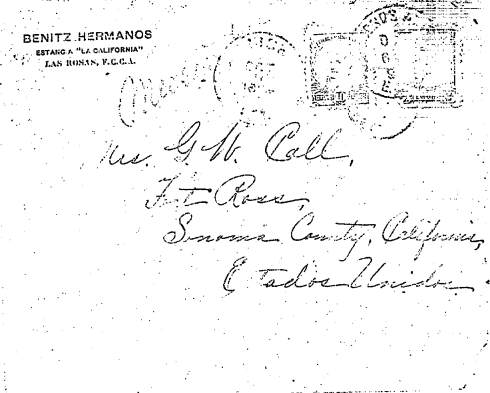 BENITZ HERMANOS
ESTANCIA "LA CALIFORNIA"
LAS ROSAS, F.C.C.A.
Mrs. G. W. Call,
Fort Ross,
Sonoma County, California,
Estados Unidos